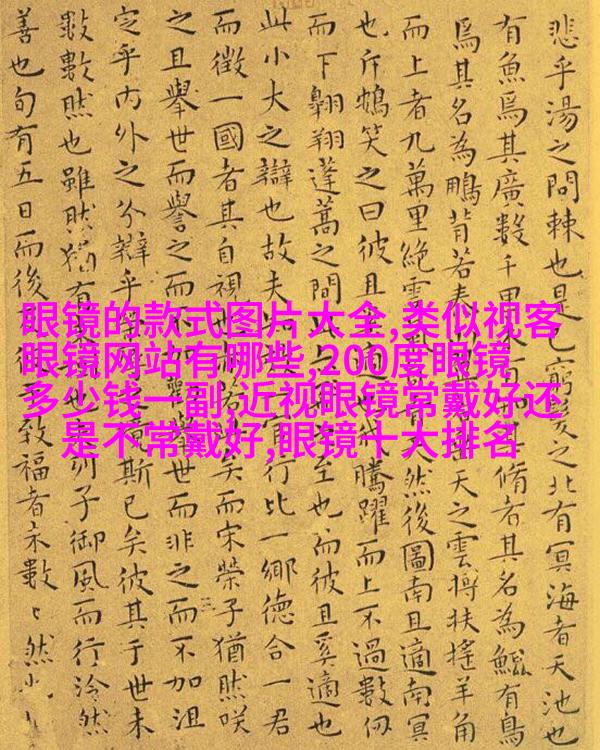 悲乎湯之問棘也是已窮髮之北有冥海者天池也
有魚焉其廣數千里有知其脩者其名為鯤有鳥
焉其名為鵬背若泰天之雲摶扶搖羊角
而上者九萬里絕雲然後圖南且適南冥
也斥鴳笑之曰彼且騰躍而上不過數仞
而下翱翔蓬蒿之間至也而彼且奚適也
此小大之辯也故夫官行比一鄉德合一君
而徵一國者其自視矣而宋榮子猶然咲
之且舉世而譽之而不加世而非之而不加沮
定乎內外之分辯乎斯已矣彼其于世未
數數然也雖然猶有列子御風而行泠然
善也旬有五日而後致福者未數〻然
眼镜的款式图片大全,类似视客
眼镜网站有哪些,200度眼镜
多少钱一副,近视眼镜常戴好还
是不常戴好,眼镜十大排名